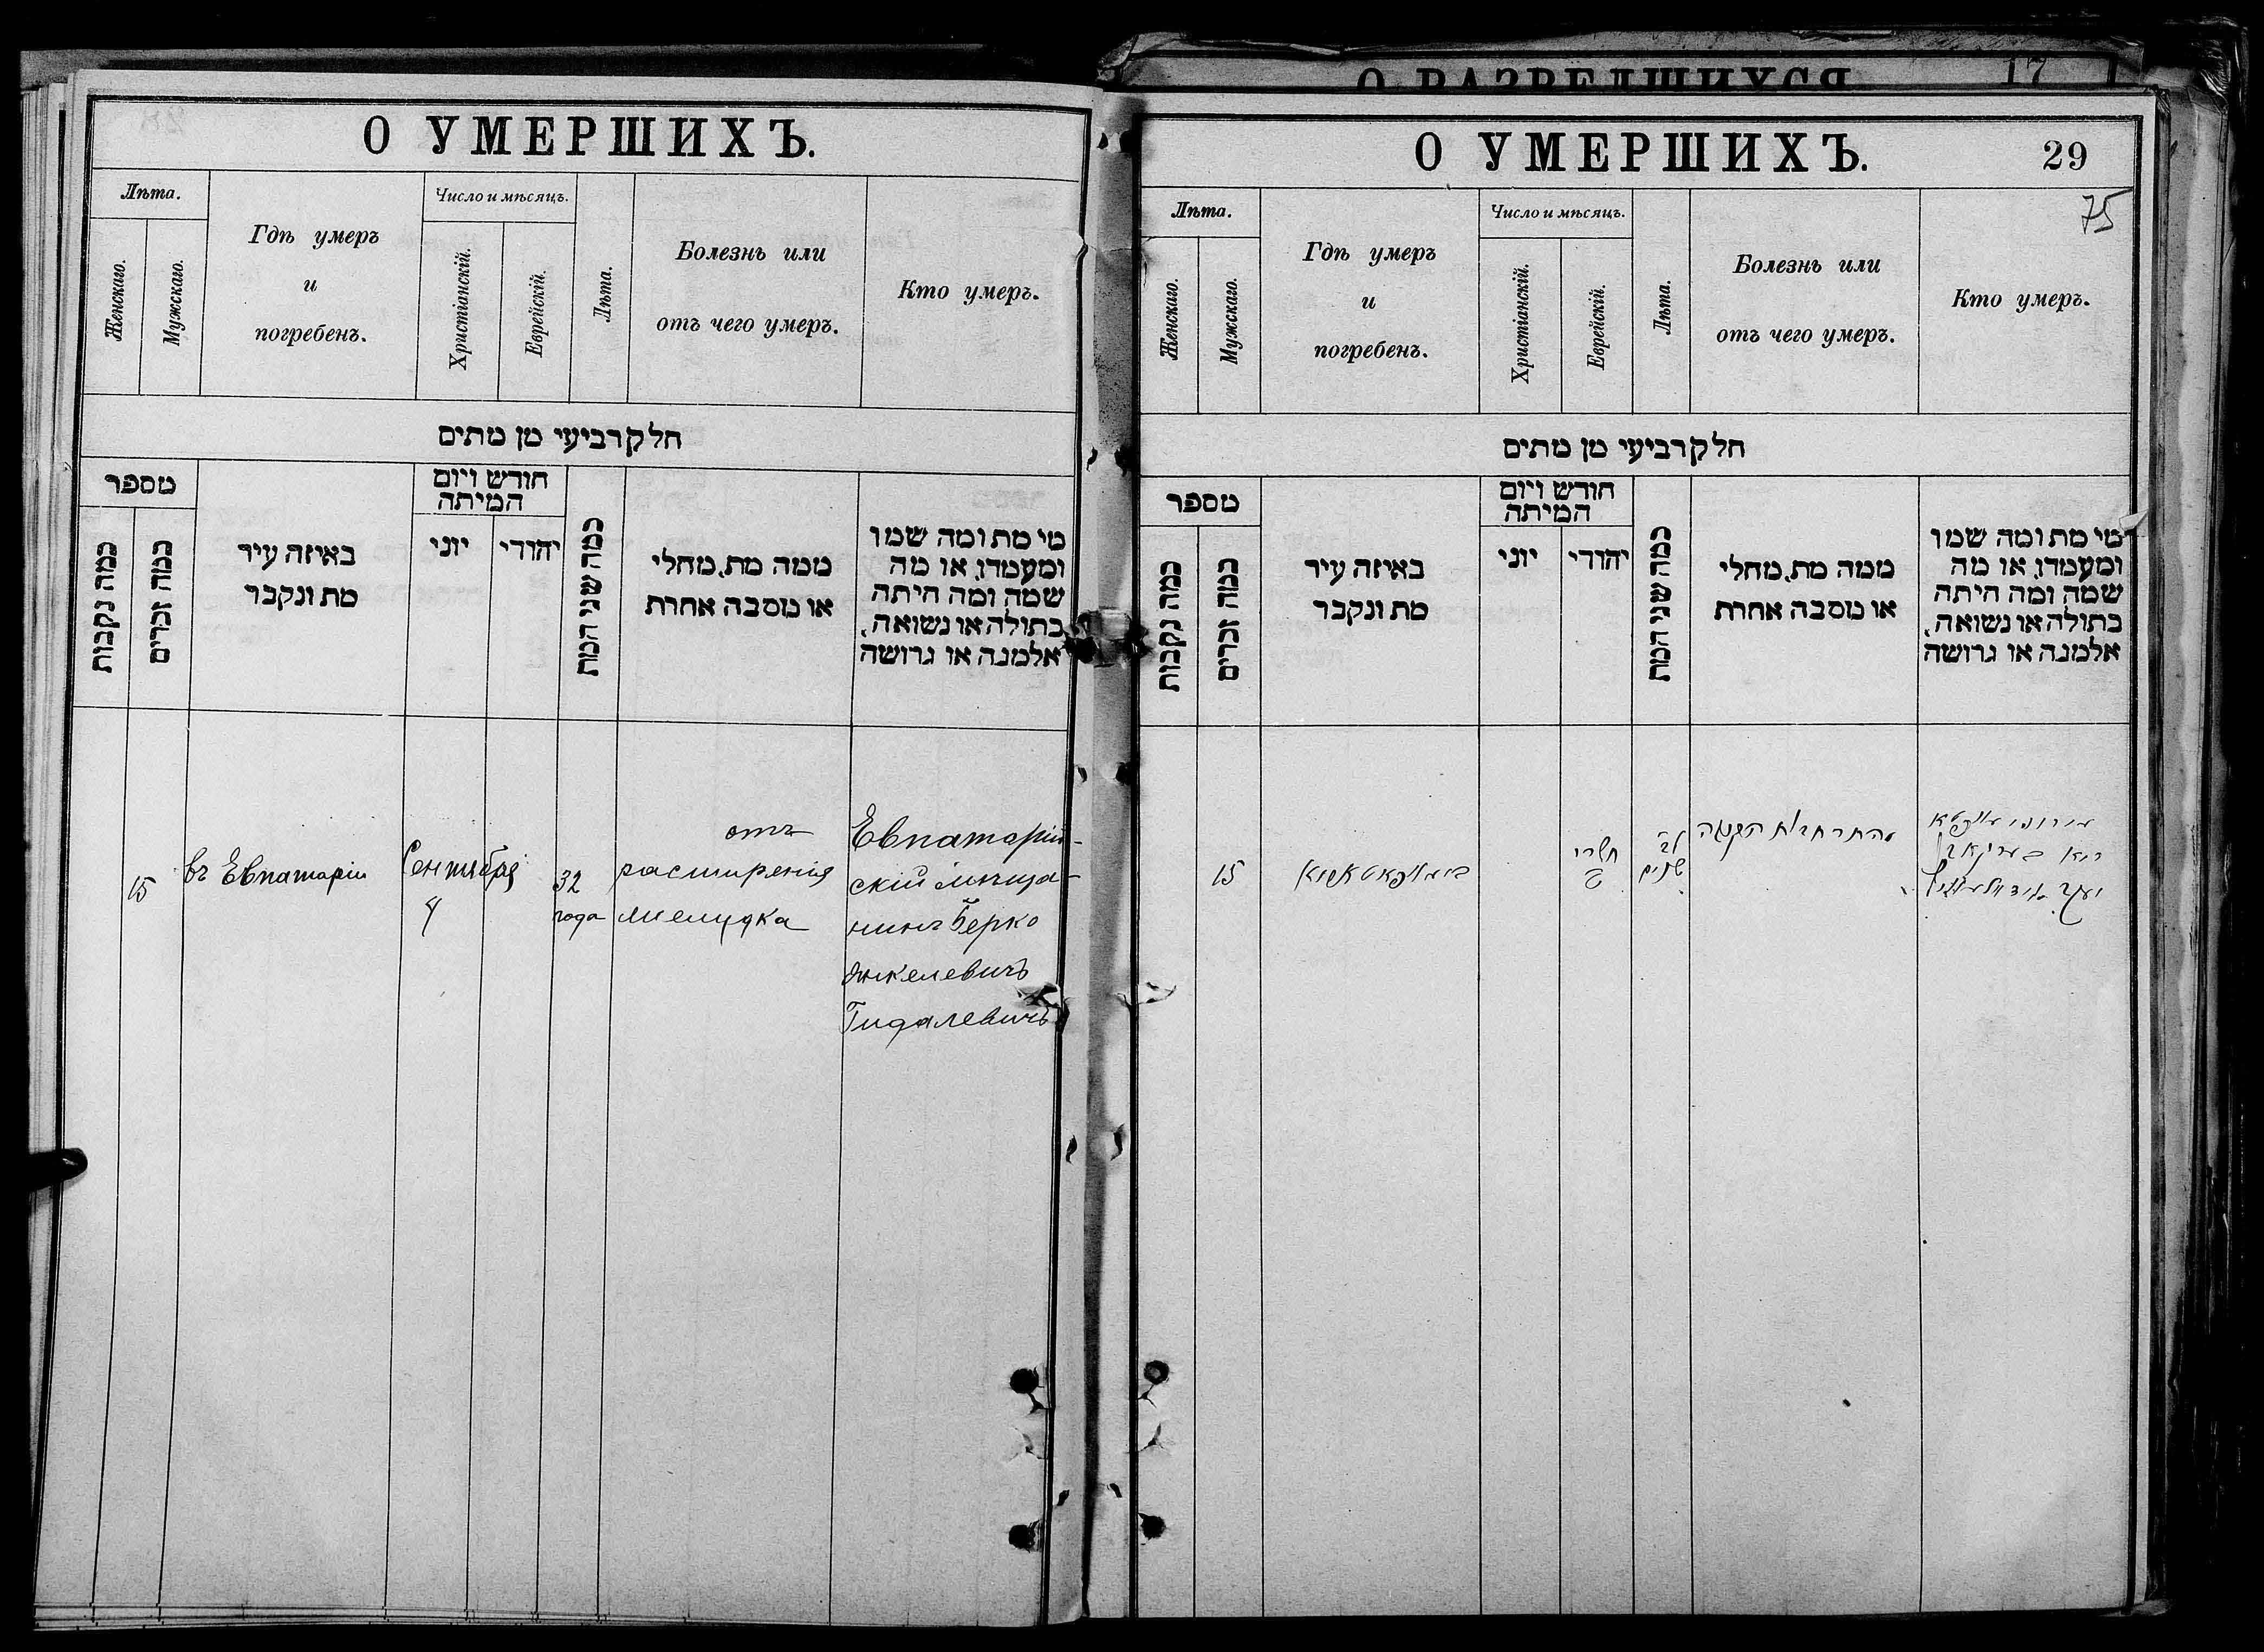 О УМЕРШИХЪ.
Лѣта.
Женскаго.
Мужскаго.
Гдѣ умеръ
и
погребенъ.
Число и мѣсяцъ.
Христіанскій.
Еврейскій.
Лѣта.
Болезнь или
отъ чего умеръ.
Кто умеръ.
חלק רביעי מן מתים
מספר
כמה נקבות
כמה זכרים
באיזה עיר
מת ונקבר
חודש ויום
המיתה
יוני
יהודי
כמה שני המת
ממה מת, מחלי
או מסבה אחרת
מי מת ומה שמו
ומעמדו, או מה
שמה ומה היתה
בתולה או נשואה,
אלמנה או גרושה
15
въ Евпаторіи
Сентября
4
32
года
отъ
расширенія
желудка
Евпаторій-
скій мѣща-
нинъ Берко
Янкелевичъ
Гидалевичъ
О РАЗВЕДШИХСЯ
17
О УМЕРШИХЪ.
29
75
Лѣта.
Женскаго.
Мужскаго.
Гдѣ умеръ
и
погребенъ.
Число и мѣсяцъ.
Христіанскій.
Еврейскій.
Лѣта.
Болезнь или
отъ чего умеръ.
Кто умеръ.
חלק רביעי מן מתים
מספר
כמה נקבות
כמה זכרים
באיזה עיר
מת ונקבר
חודש ויום
המיתה
יוני
יהודי
כמה שני המת
ממה מת, מחלי
או מסבה אחרת
מי מת ומה שמו
ומעמדו, או מה
שמה ומה היתה
בתולה או נשואה,
אלמנה או גרושה
15
תשרי
לב
שנים